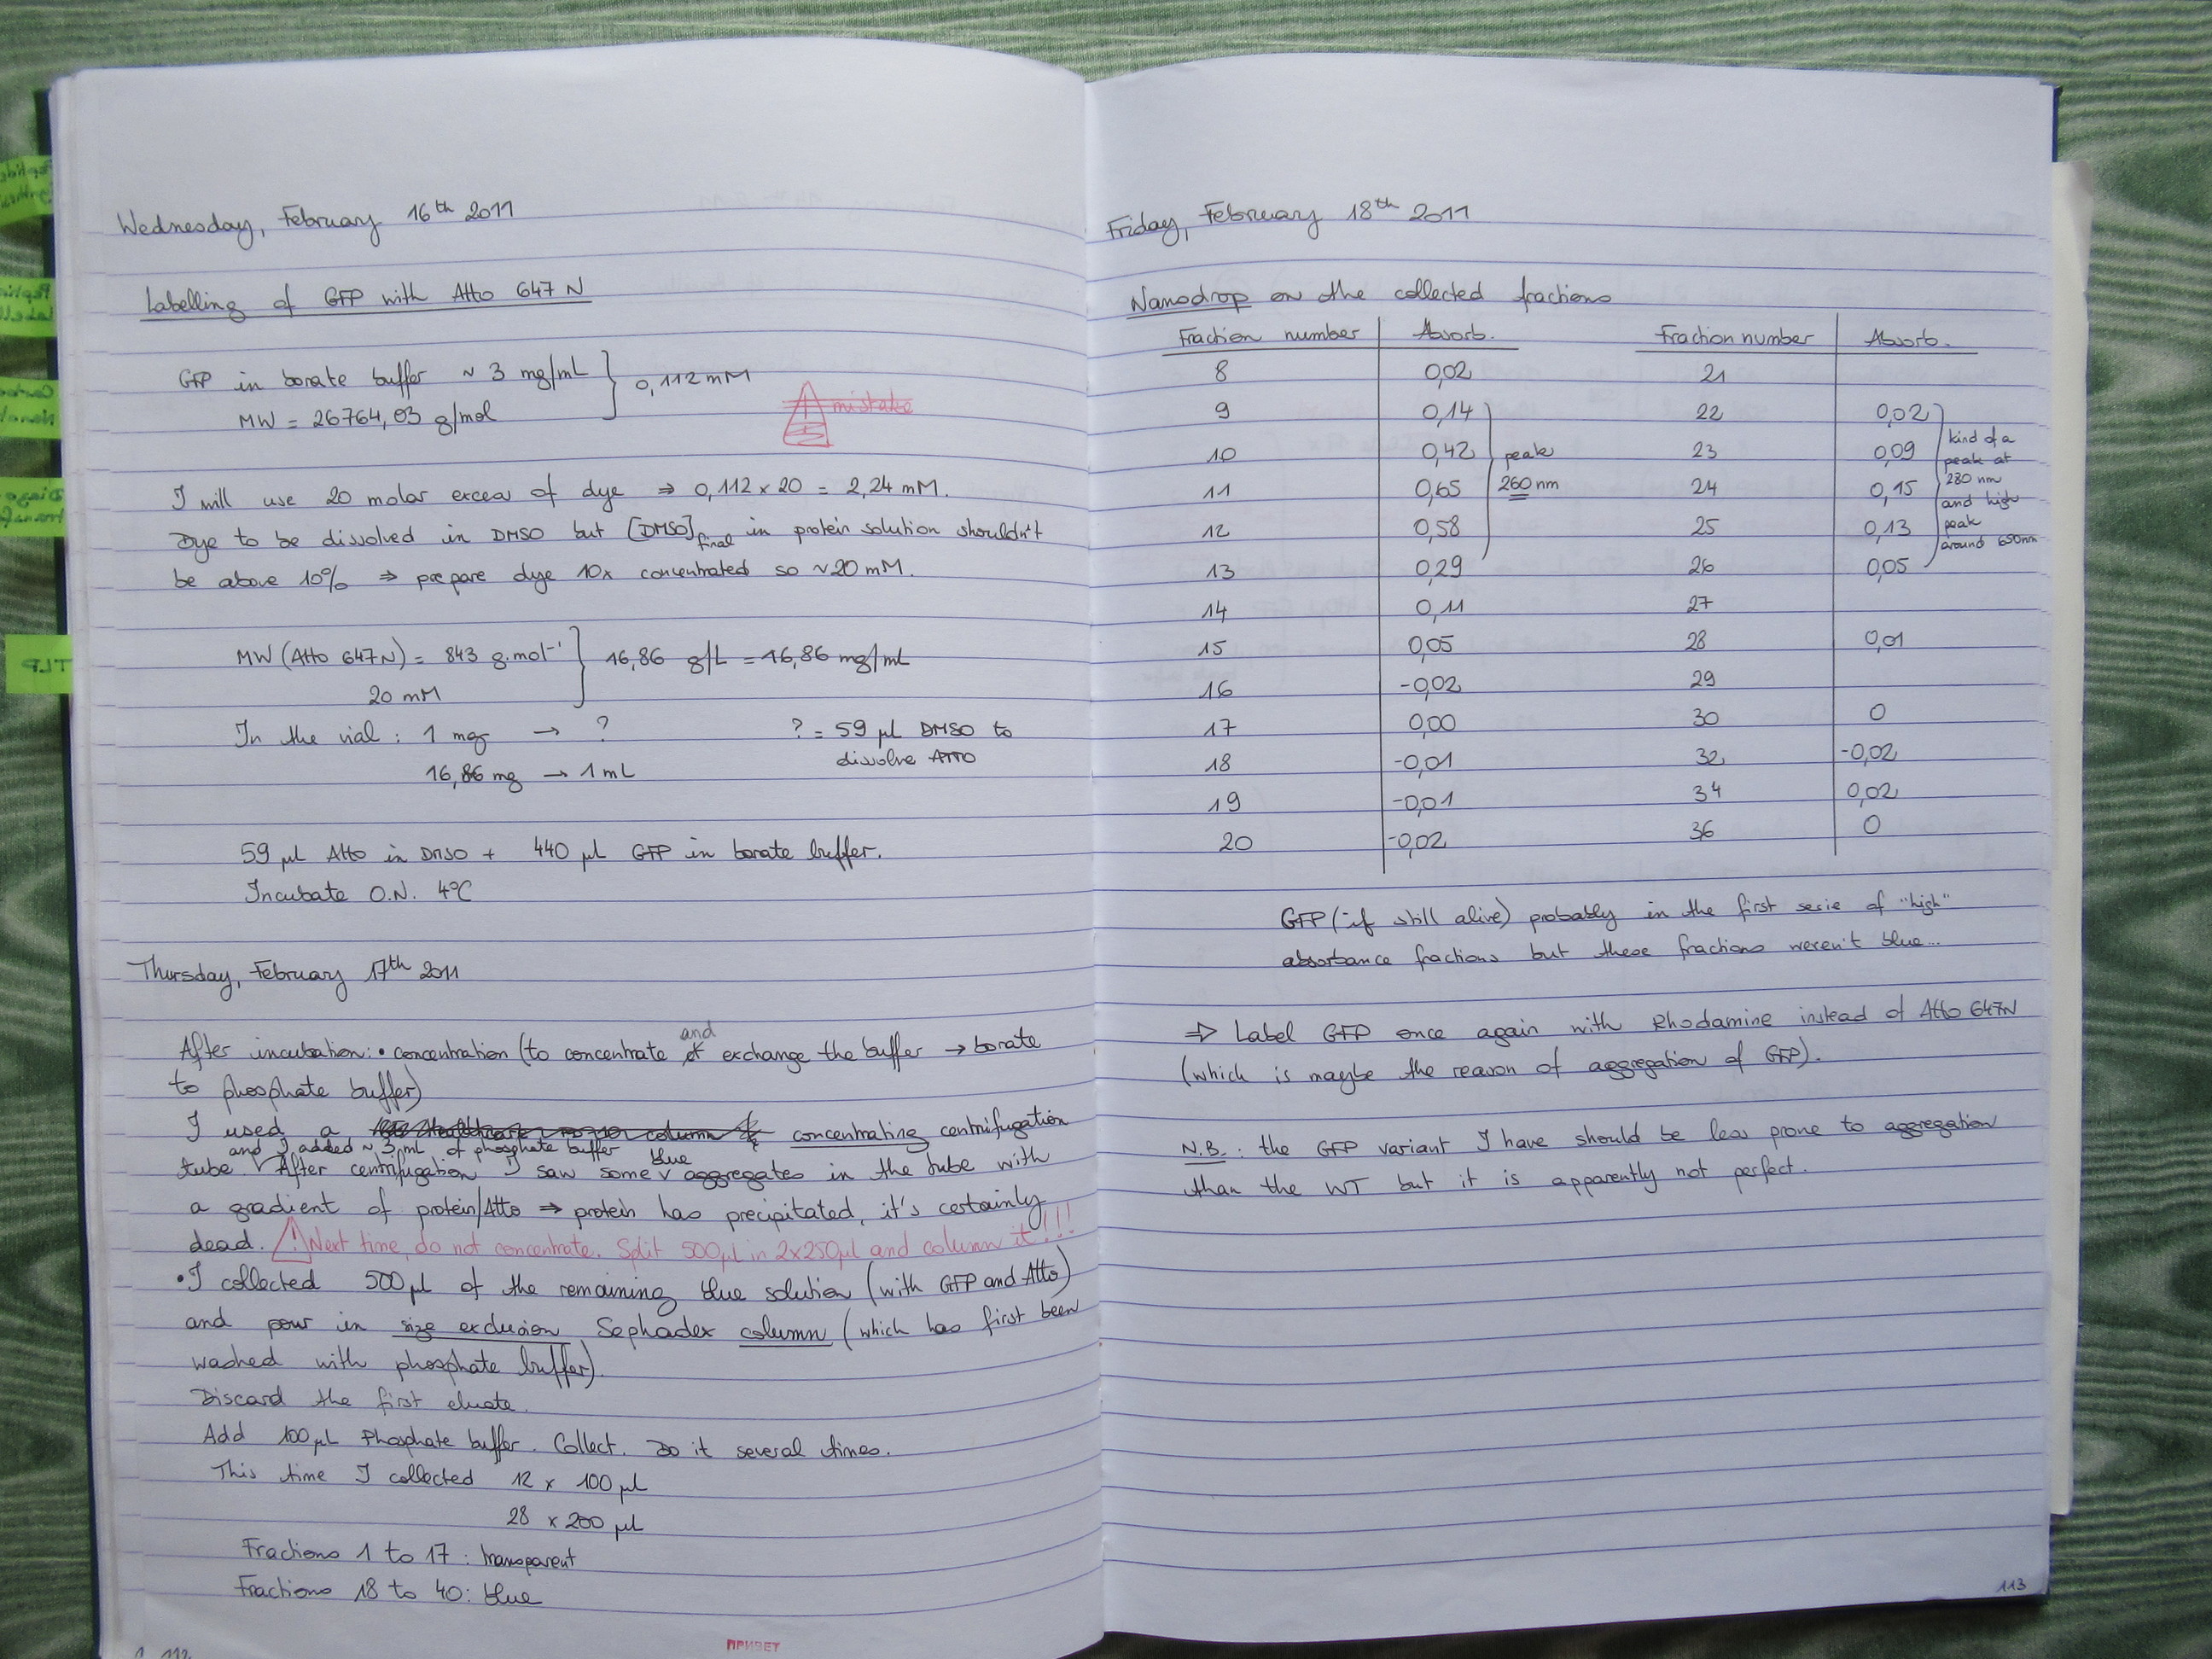 Wednesday, February 16th 2011
Labelling of GFP with Atto 647 N
GFP in borate buffer ~ 3 mg/mL } 0,112 mM
MW = 26764,03 g/mol
mistake
I will use 20 molar excess of dye ⇒ 0,112 x 20 = 2,24 mM.
Dye to be dissolved in DMSO but [DMSO]final in protein solution shouldn't
be above 10% ⇒ prepare dye 10x concentrated so ~20 mM.
MW (Atto 647N) = 843 g.mol⁻¹ } 16,86 g/L = 16,86 mg/mL
20 mM
In the vial : 1 mg → ? ? = 59 µl DMSO to
dissolve ATTO
16,86 mg → 1 mL
59 µl Atto in DMSO + 440 µl GFP in borate buffer.
Incubate O.N. 4°C
Thursday, February 17th 2011
After incubation: • concentration (to concentrate and exchange the buffer → borate
to phosphate buffer)
I used a concentrating centrifugation
and I added ~ 3 mL of phosphate buffer
tube ∨ After centrifugation I saw some ∨ blue aggregates in the tube with
a gradient of protein/Atto ⇒ protein has precipitated, it's certainly
dead. ! Next time, do not concentrate. Split 500µl in 2x250µl and column it!!!
• I collected 500 µl of the remaining blue solution (with GFP and Atto)
and pour in size exclusion Sephadex column (which has first been
washed with phosphate buffer).
Discard the first eluate.
Add 100 µL Phosphate buffer. Collect. Do it several times.
This time I collected 12 x 100 µl
28 x 200 µl
Fractions 1 to 17 : transparent
Fractions 18 to 40 : blue
ПРИВЕТ
Friday, February 18th 2011
Nanodrop on the collected fractions
Fraction number Absorb. Fraction number Absorb.
8 0,02 21
9 0,14 22 0,02
10 0,42 23 0,09
11 0,65 24 0,15
12 0,58 25 0,13
13 0,29 26 0,05
14 0,11 27
15 0,05 28 0,01
16 -0,02 29
17 0,00 30 0
18 -0,01 32 -0,02
19 -0,01 34 0,02
20 -0,02 36 0
peak
260 nm
kind of a
peak at
280 nm
and high
peak
around 650nm
GFP (if still alive) probably in the first serie of "high"
absorbance fractions but these fractions weren't blue...
⇒ Label GFP once again with Rhodamine instead of Atto 647N
(which is maybe the reason of aggregation of GFP).
N.B. : the GFP variant I have should be less prone to aggregation
than the WT but it is apparently not perfect.
113